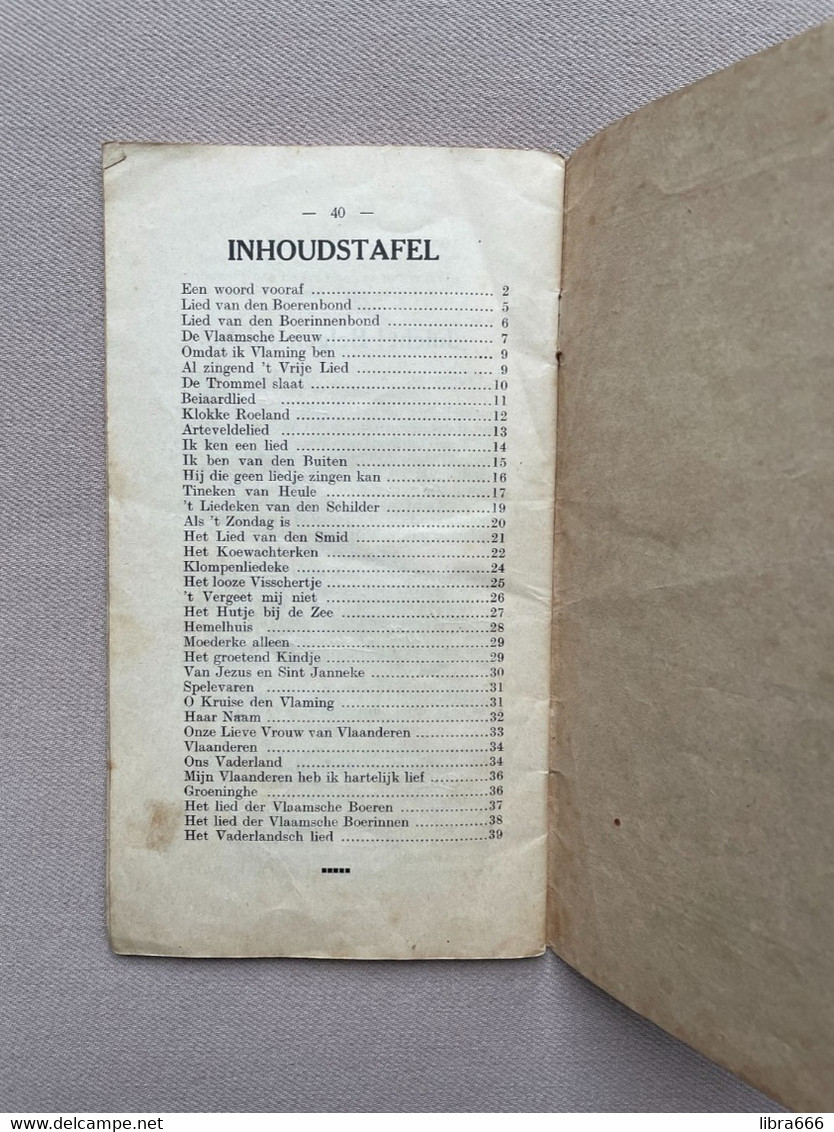 — 40 —
INHOUDSTAFEL
Een woord vooraf 2
Lied van den Boerenbond 5
Lied van den Boerinnenbond 6
De Vlaamsche Leeuw 7
Omdat ik Vlaming ben 9
Al zingend 't Vrije Lied 9
De Trommel slaat 10
Beiaardlied 11
Klokke Roeland 12
Arteveldelied 13
Ik ken een lied 14
Ik ben van den Buiten 15
Hij die geen liedje zingen kan 16
Tineken van Heule 17
't Liedeken van den Schilder 19
Als 't Zondag is 20
Het Lied van den Smid 21
Het Koewachterken 22
Klompenliedeke 24
Het looze Visschertje 25
't Vergeet mij niet 26
Het Hutje bij de Zee 27
Hemelhuis 28
Moederke alleen 29
Het groetend Kindje 29
Van Jezus en Sint Janneke 30
Spelevaren 31
O Kruise den Vlaming 31
Haar Naam 32
Onze Lieve Vrouw van Vlaanderen 33
Vlaanderen 34
Ons Vaderland 34
Mijn Vlaanderen heb ik hartelijk lief 36
Groeninghe 36
Het lied der Vlaamsche Boeren 37
Het lied der Vlaamsche Boerinnen 38
Het Vaderlandsch lied 39
www.delcampe.net
libra666